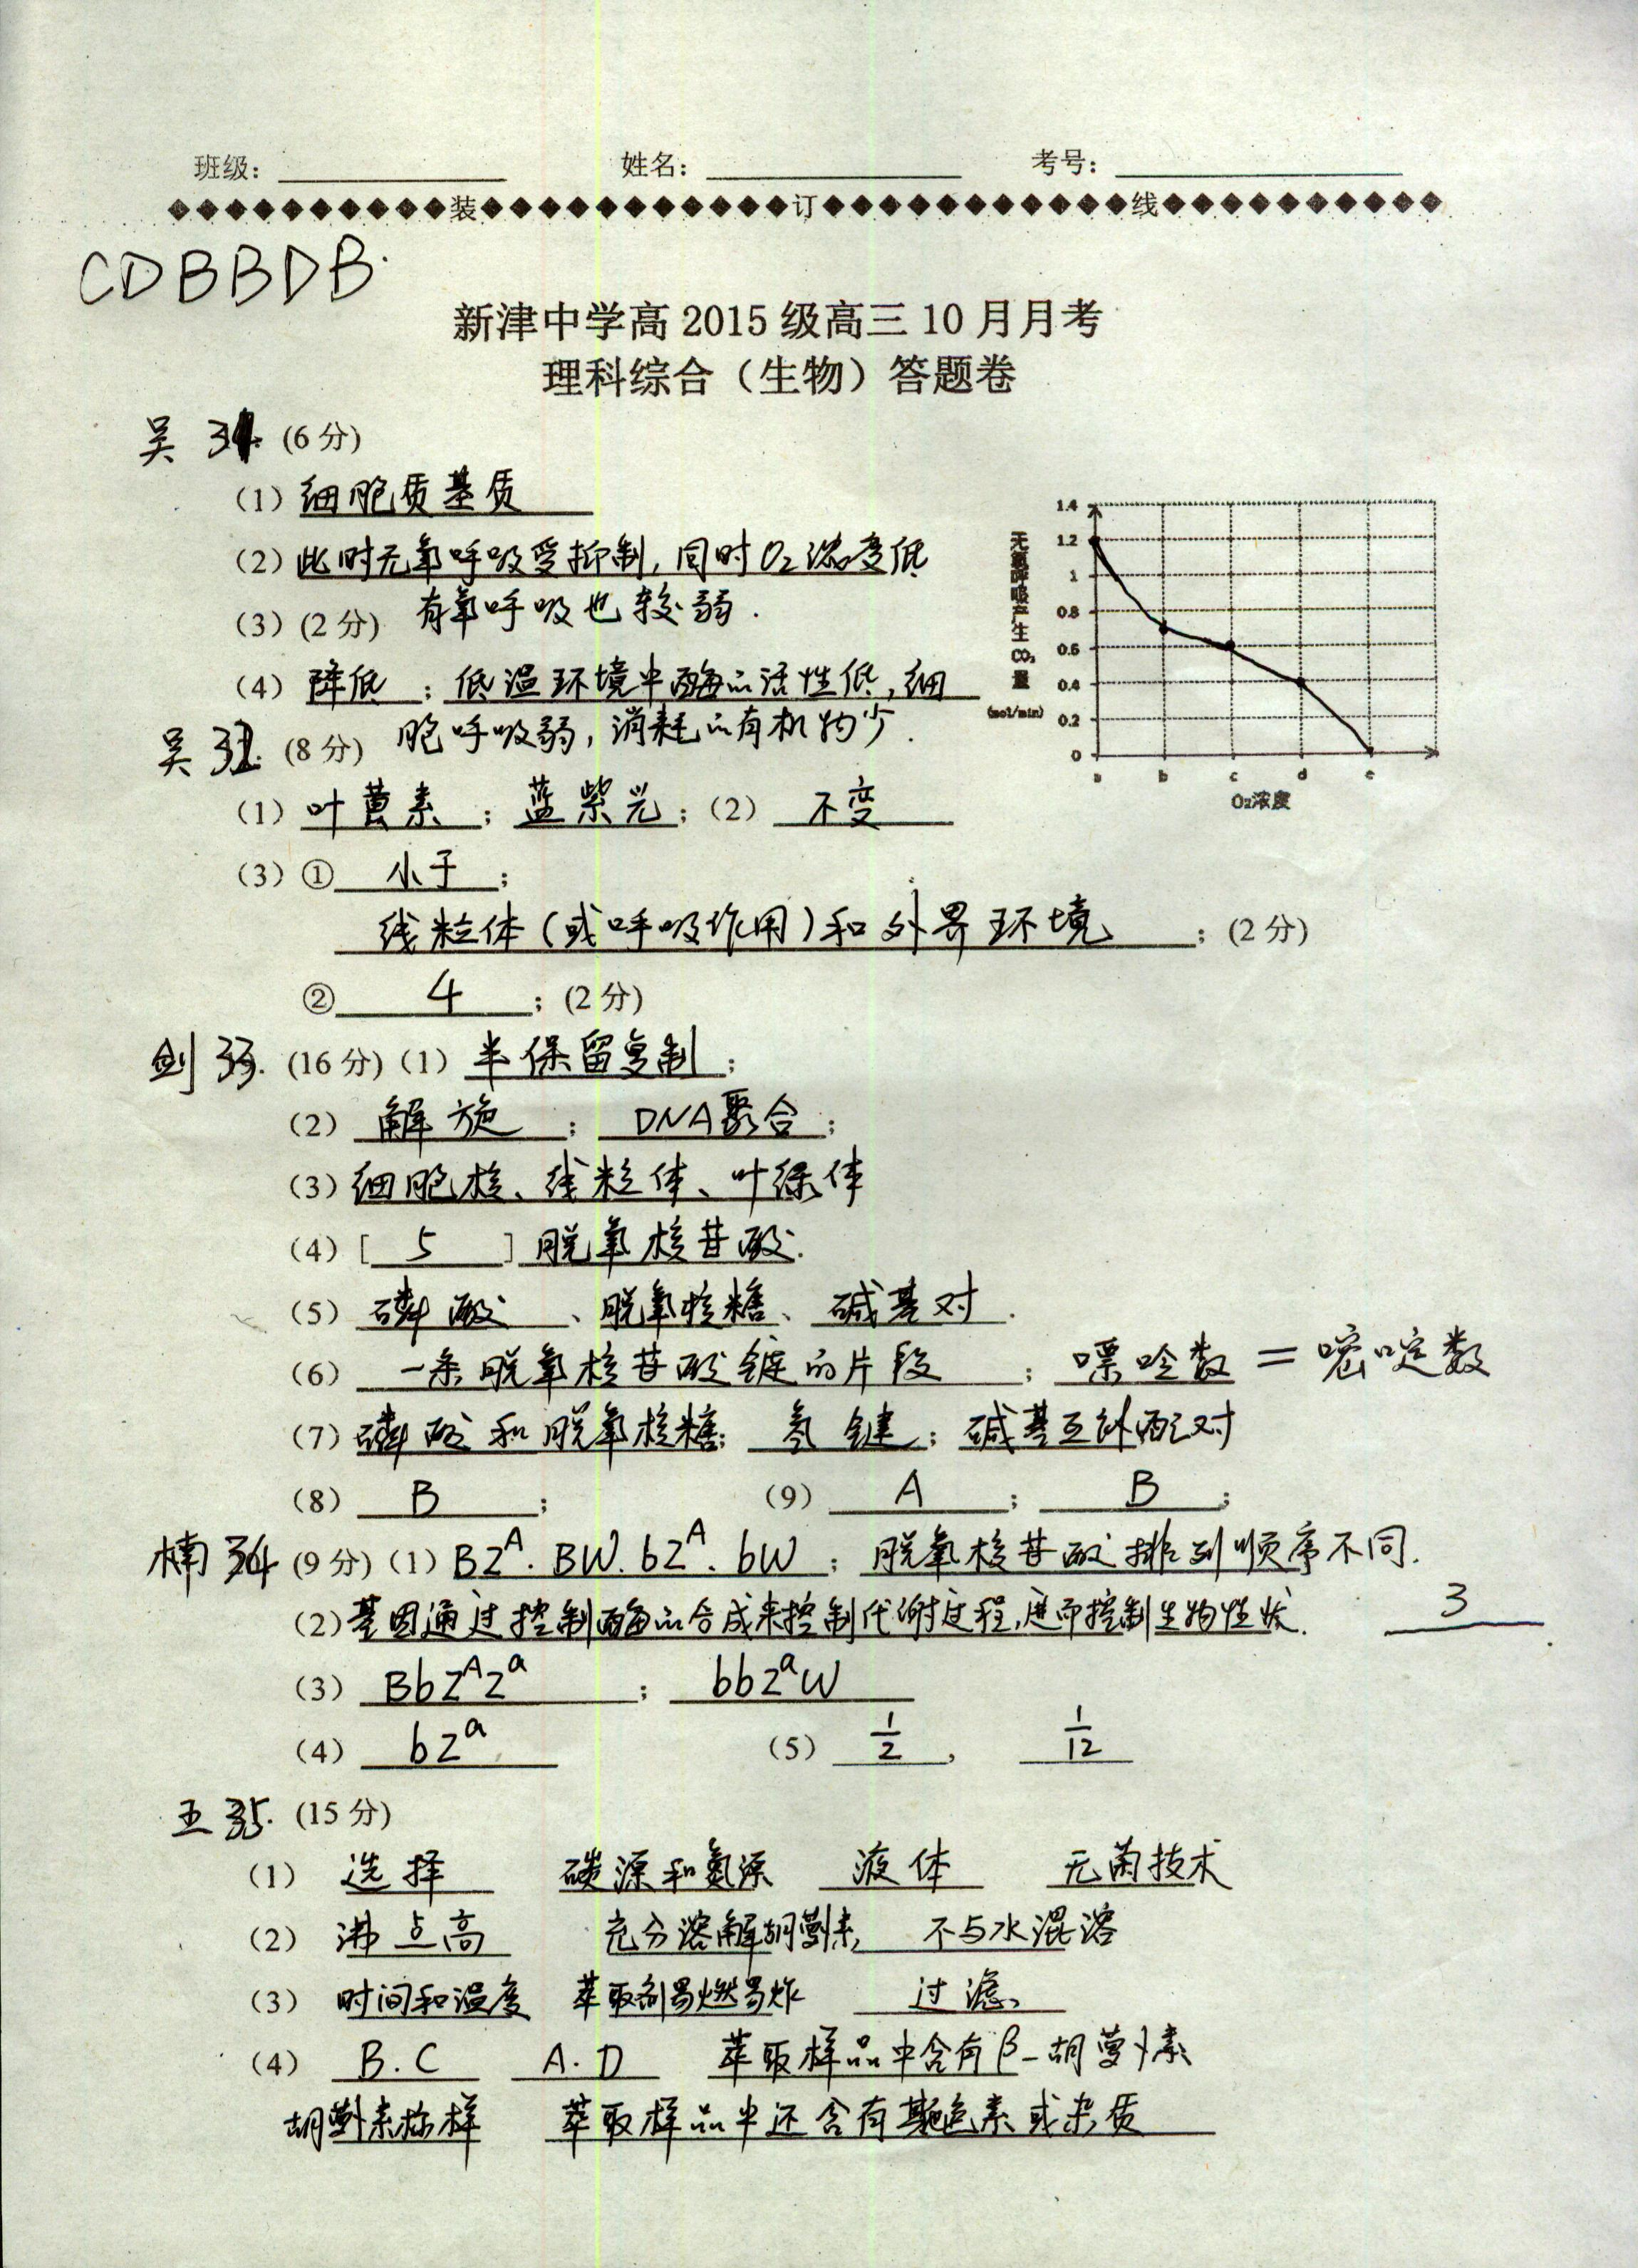 班级： 姓名： 考号：
◆◆◆◆◆◆◆◆◆◆装◆◆◆◆◆◆◆◆◆◆◆订◆◆◆◆◆◆◆◆◆◆◆线◆◆◆◆◆◆◆◆◆◆
CDBBDB.
新津中学高 2015 级高三 10 月月考
理科综合（生物）答题卷
吴 31. (6 分)
(1) 细胞质基质
(2) 此时无氧呼吸受抑制, 同时O₂浓度低
有氧呼吸也较弱.
(3) (2 分)
(4) 降低 ; 低温环境中酶的活性低, 细
胞呼吸弱, 消耗的有机物少.
1.4
1.2
1
0.8
0.6
0.4
0.2
0
无氧呼吸产生CO₂量
(mol/min)
a b c d e
O₂浓度
吴 32. (8 分)
(1) 叶黄素 ; 蓝紫光 ; (2) 不变
(3) ① 小于 ;
线粒体 (或呼吸作用) 和外界环境 ; (2 分)
② 4 ; (2 分)
剑 33. (16 分) (1) 半保留复制 ;
(2) 解旋 ; DNA聚合 ;
(3) 细胞核、线粒体、叶绿体
(4) [ 5 ] 脱氧核苷酸.
(5) 磷酸 、脱氧核糖、碱基对 .
(6) 一条脱氧核苷酸链的片段 ; 嘌呤数 = 嘧啶数
(7) 磷酸和脱氧核糖; 氢键 ; 碱基互补配对
(8) B ; (9) A ; B ;
楠 34 (9 分) (1) BZᴬ. BW. bZᴬ. bW ; 脱氧核苷酸排列顺序不同.
(2) 基因通过控制酶的合成来控制代谢过程, 进而控制生物性状. 3 .
(3) BbZᴬZᵃ ; bbZᵃW
(4) bZᵃ (5) 1/2 , 1/12
王 35. (15 分)
(1) 选择 碳源和氮源 液体 无菌技术
(2) 沸点高 充分溶解胡萝卜素, 不与水混溶
(3) 时间和温度 萃取剂易燃易炸 过滤
(4) B.C A.D 萃取样品中含有β-胡萝卜素
胡萝卜素标样 萃取样品中还含有其他色素或杂质